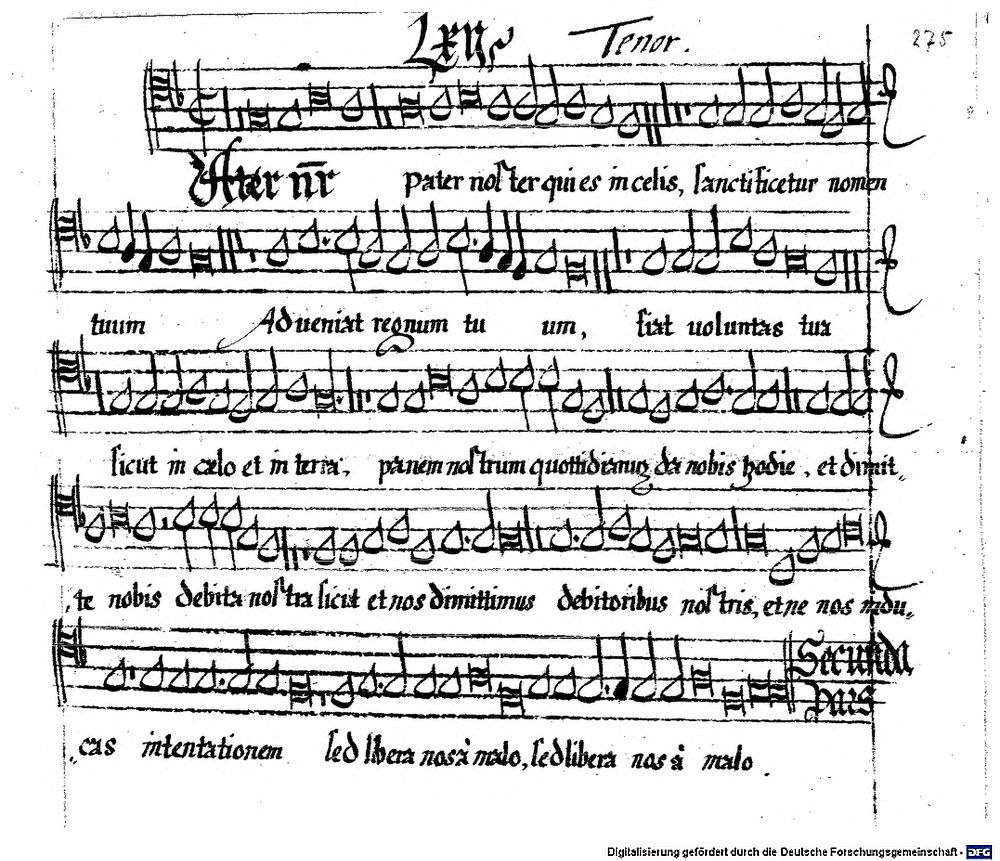 Tenor. 275
Pater nr̄ Pater noster qui es in celis, sanctificetur nomen
tuum Adueniat regnum tu um, fiat uoluntas tua
sicut in cælo et in terra, panem nostrum quottidianuȝ da nobis hodie, et dimit„
„te nobis debita nostra sicut et nos dimittimus debitoribus nostris, et ne nos indu„
Secunda
pars
„cas intentationem sed libera nos à malo, sed libera nos à malo.
Digitalisierung gefördert durch die Deutsche Forschungsgemeinschaft - DFG